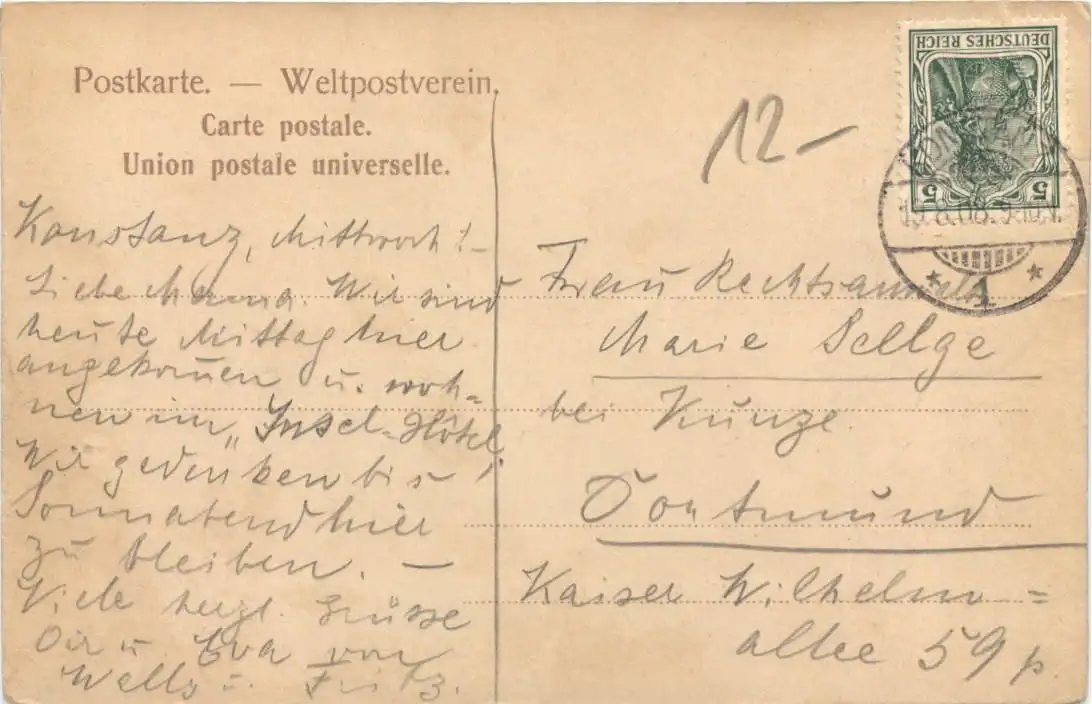 Postkarte. — Weltpostverein.
Carte postale.
Union postale universelle.
Konstanz, Mittwoch!-
Liebe Mama. Wir sind
heute Mittag hier
angekommen u. woh-
nen im "Insel-Hôtel".
Wir gedenken bis
Sonnabend hier
zu bleiben. —
Viele herzl. Grüsse
Dir u. Eva von
Welly u. Fritz.
12-
DEUTSCHES REICH
5 5
8.08.9-10V.
* 1 *
Frau Rechtsanwalt
Marie Sellge
bei Kunze.
Dortmund
Kaiser Wilhelm=
allee 59 p